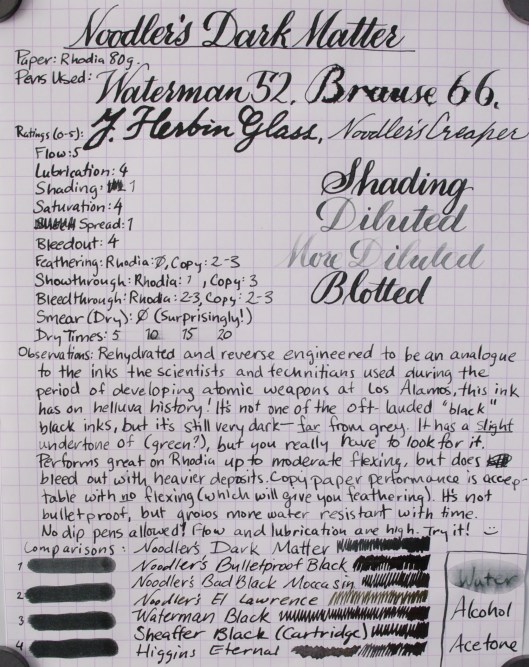 Noodler's Dark Matter
Paper: Rhodia 80g.
Pens Used: Waterman 52, Brause 66,
J. Herbin Glass, Noodler's Creaper
Ratings (0-5):
Flow: 5
Lubrication: 4
Shading: 1
Saturation: 4
Spread: 1
Bleedout: 4
Feathering: Rhodia: Ø, Copy: 2-3
Showthrough: Rhodia: 1, Copy: 3
Bleedthrough: Rhodia: 2-3, Copy: 2-3
Smear (Dry): Ø (Surprisingly!)
Dry Times: 5 10 15 20
Shading
Diluted
More Diluted
Blotted
Observations: Rehydrated and reverse engineered to be an analogue
to the inks the scientists and technitians used during the
period of developing atomic weapons at Los Alamos, this ink
has on helluva history! It's not one of the oft-lauded "black"
black inks, but it's still very dark—far from grey. It has a slight
undertone of (green?), but you really have to look for it.
Performs great on Rhodia up to moderate flexing, but does
bleed out with heavier deposits. Copy paper performance is accep-
table with no flexing (which will give you feathering). It's not
bulletproof, but grows more water resistant with time.
No dip pens allowed! Flow and lubrication are high. Try it! :)
Comparisons: Noodler's Dark Matter
1 Noodler's Bulletproof Black
Noodler's Bad Black Moccasin
2 Noodler's El Lawrence
3 Waterman Black
Sheaffer Black (Cartridge)
4 Higgins Eternal
Water
Alcohol
Acetone